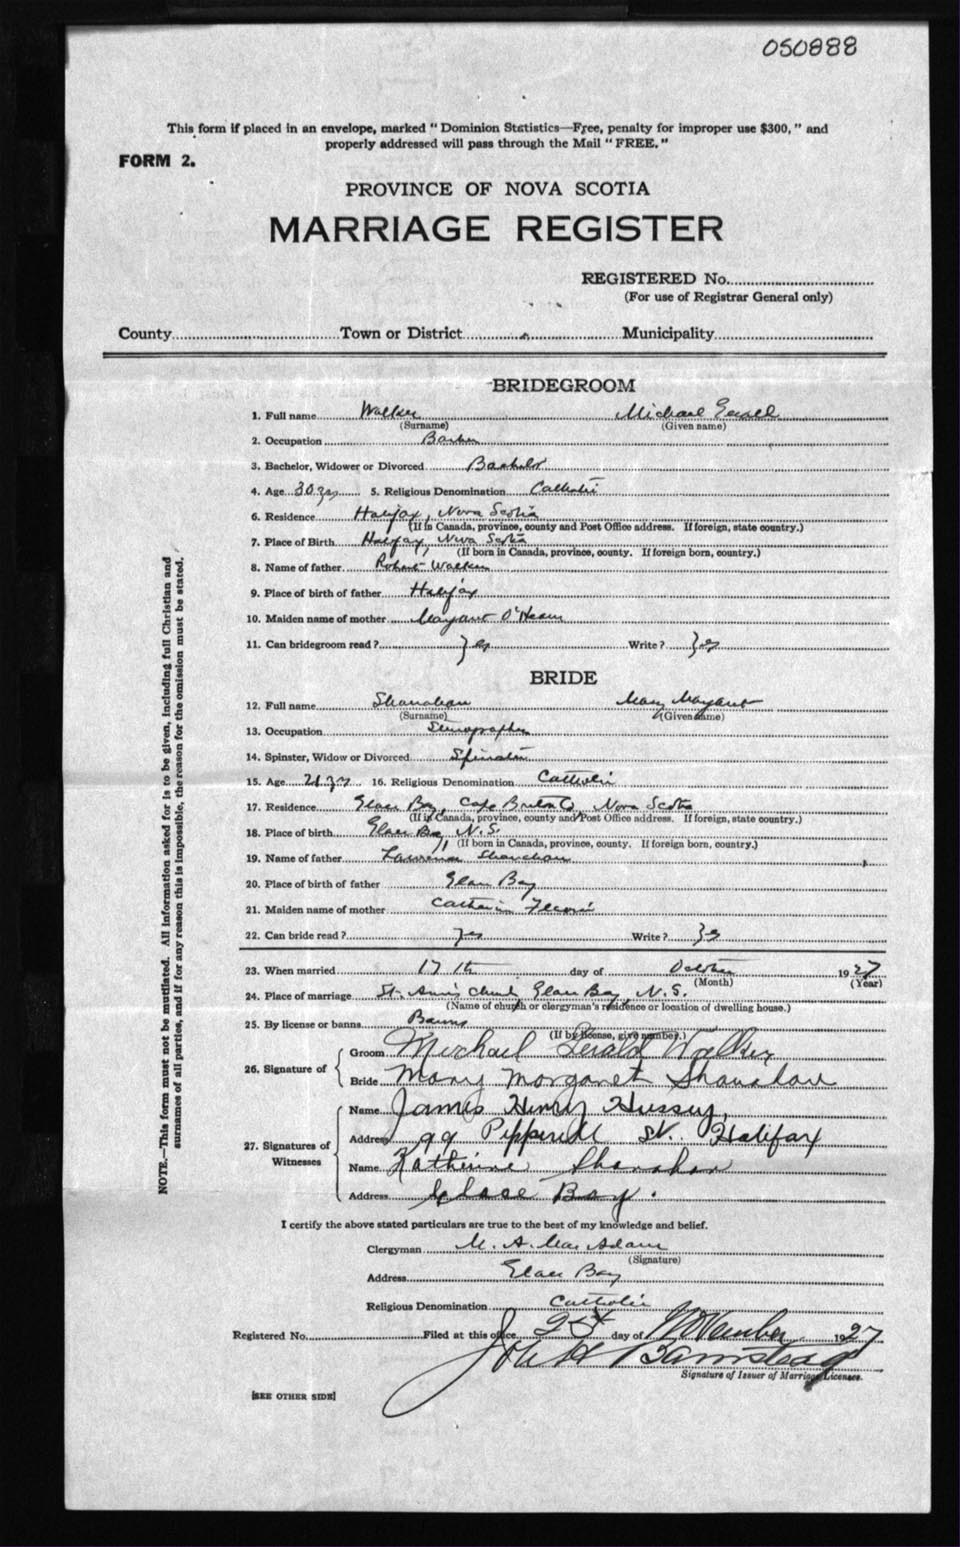 050888
This form if placed in an envelope, marked " Dominion Statistics—Free, penalty for improper use $300, " and
properly addressed will pass through the Mail " FREE. "
FORM 2.
PROVINCE OF NOVA SCOTIA
MARRIAGE REGISTER
REGISTERED No.
(For use of Registrar General only)
County Town or District Municipality
BRIDEGROOM
1. Full name Walker Michael Gerald
(Surname) (Given name)
2. Occupation Barber
3. Bachelor, Widower or Divorced Bachelor
4. Age 30 yrs 5. Religious Denomination Catholic
6. Residence Halifax, Nova Scotia
(If in Canada, province, county and Post Office address. If foreign, state country.)
7. Place of Birth Halifax, Nova Scotia
(If born in Canada, province, county. If foreign born, country.)
8. Name of father Robert Walker
9. Place of birth of father Halifax
10. Maiden name of mother Margaret O'Hearn
11. Can bridegroom read? yes Write? yes
BRIDE
12. Full name Shanahan Mary Margaret
(Surname) (Given name)
13. Occupation Stenographer
14. Spinster, Widow or Divorced Spinster
15. Age 21 yrs 16. Religious Denomination Catholic
17. Residence Glace Bay, Cape Breton Co, Nova Scotia
(If in Canada, province, county and Post Office address. If foreign, state country.)
18. Place of birth Glace Bay, N.S.
(If born in Canada, province, county. If foreign born, country.)
19. Name of father Lawrence Shanahan
20. Place of birth of father Glace Bay
21. Maiden name of mother Catherine
22. Can bride read? yes Write? yes
23. When married 17th day of October 1927
(Month) (Year)
24. Place of marriage St. Ann's Church, Glace Bay, N.S.
(Name of church or clergyman's residence or location of dwelling house.)
25. By license or banns Banns
(If by license, give number.)
26. Signature of
Groom Michael Gerald Walker
Bride Mary Margaret Shanahan
27. Signatures of Witnesses
Name James Henry Hussey,
Address 99 Pepperell St. Halifax
Name Katherine Shanahan
Address Glace Bay.
I certify the above stated particulars are true to the best of my knowledge and belief.
Clergyman M. A. MacAdam
(Signature)
Address Glace Bay
Religious Denomination Catholic
Registered No. Filed at this office day of November 1927
Signature of Issuer of Marriage Licenses.
[SEE OTHER SIDE]
NOTE.—This form must not be mutilated. All information asked for is to be given, including full Christian and
surnames of all parties, and if for any reason this is impossible, the reason for the omission must be stated.